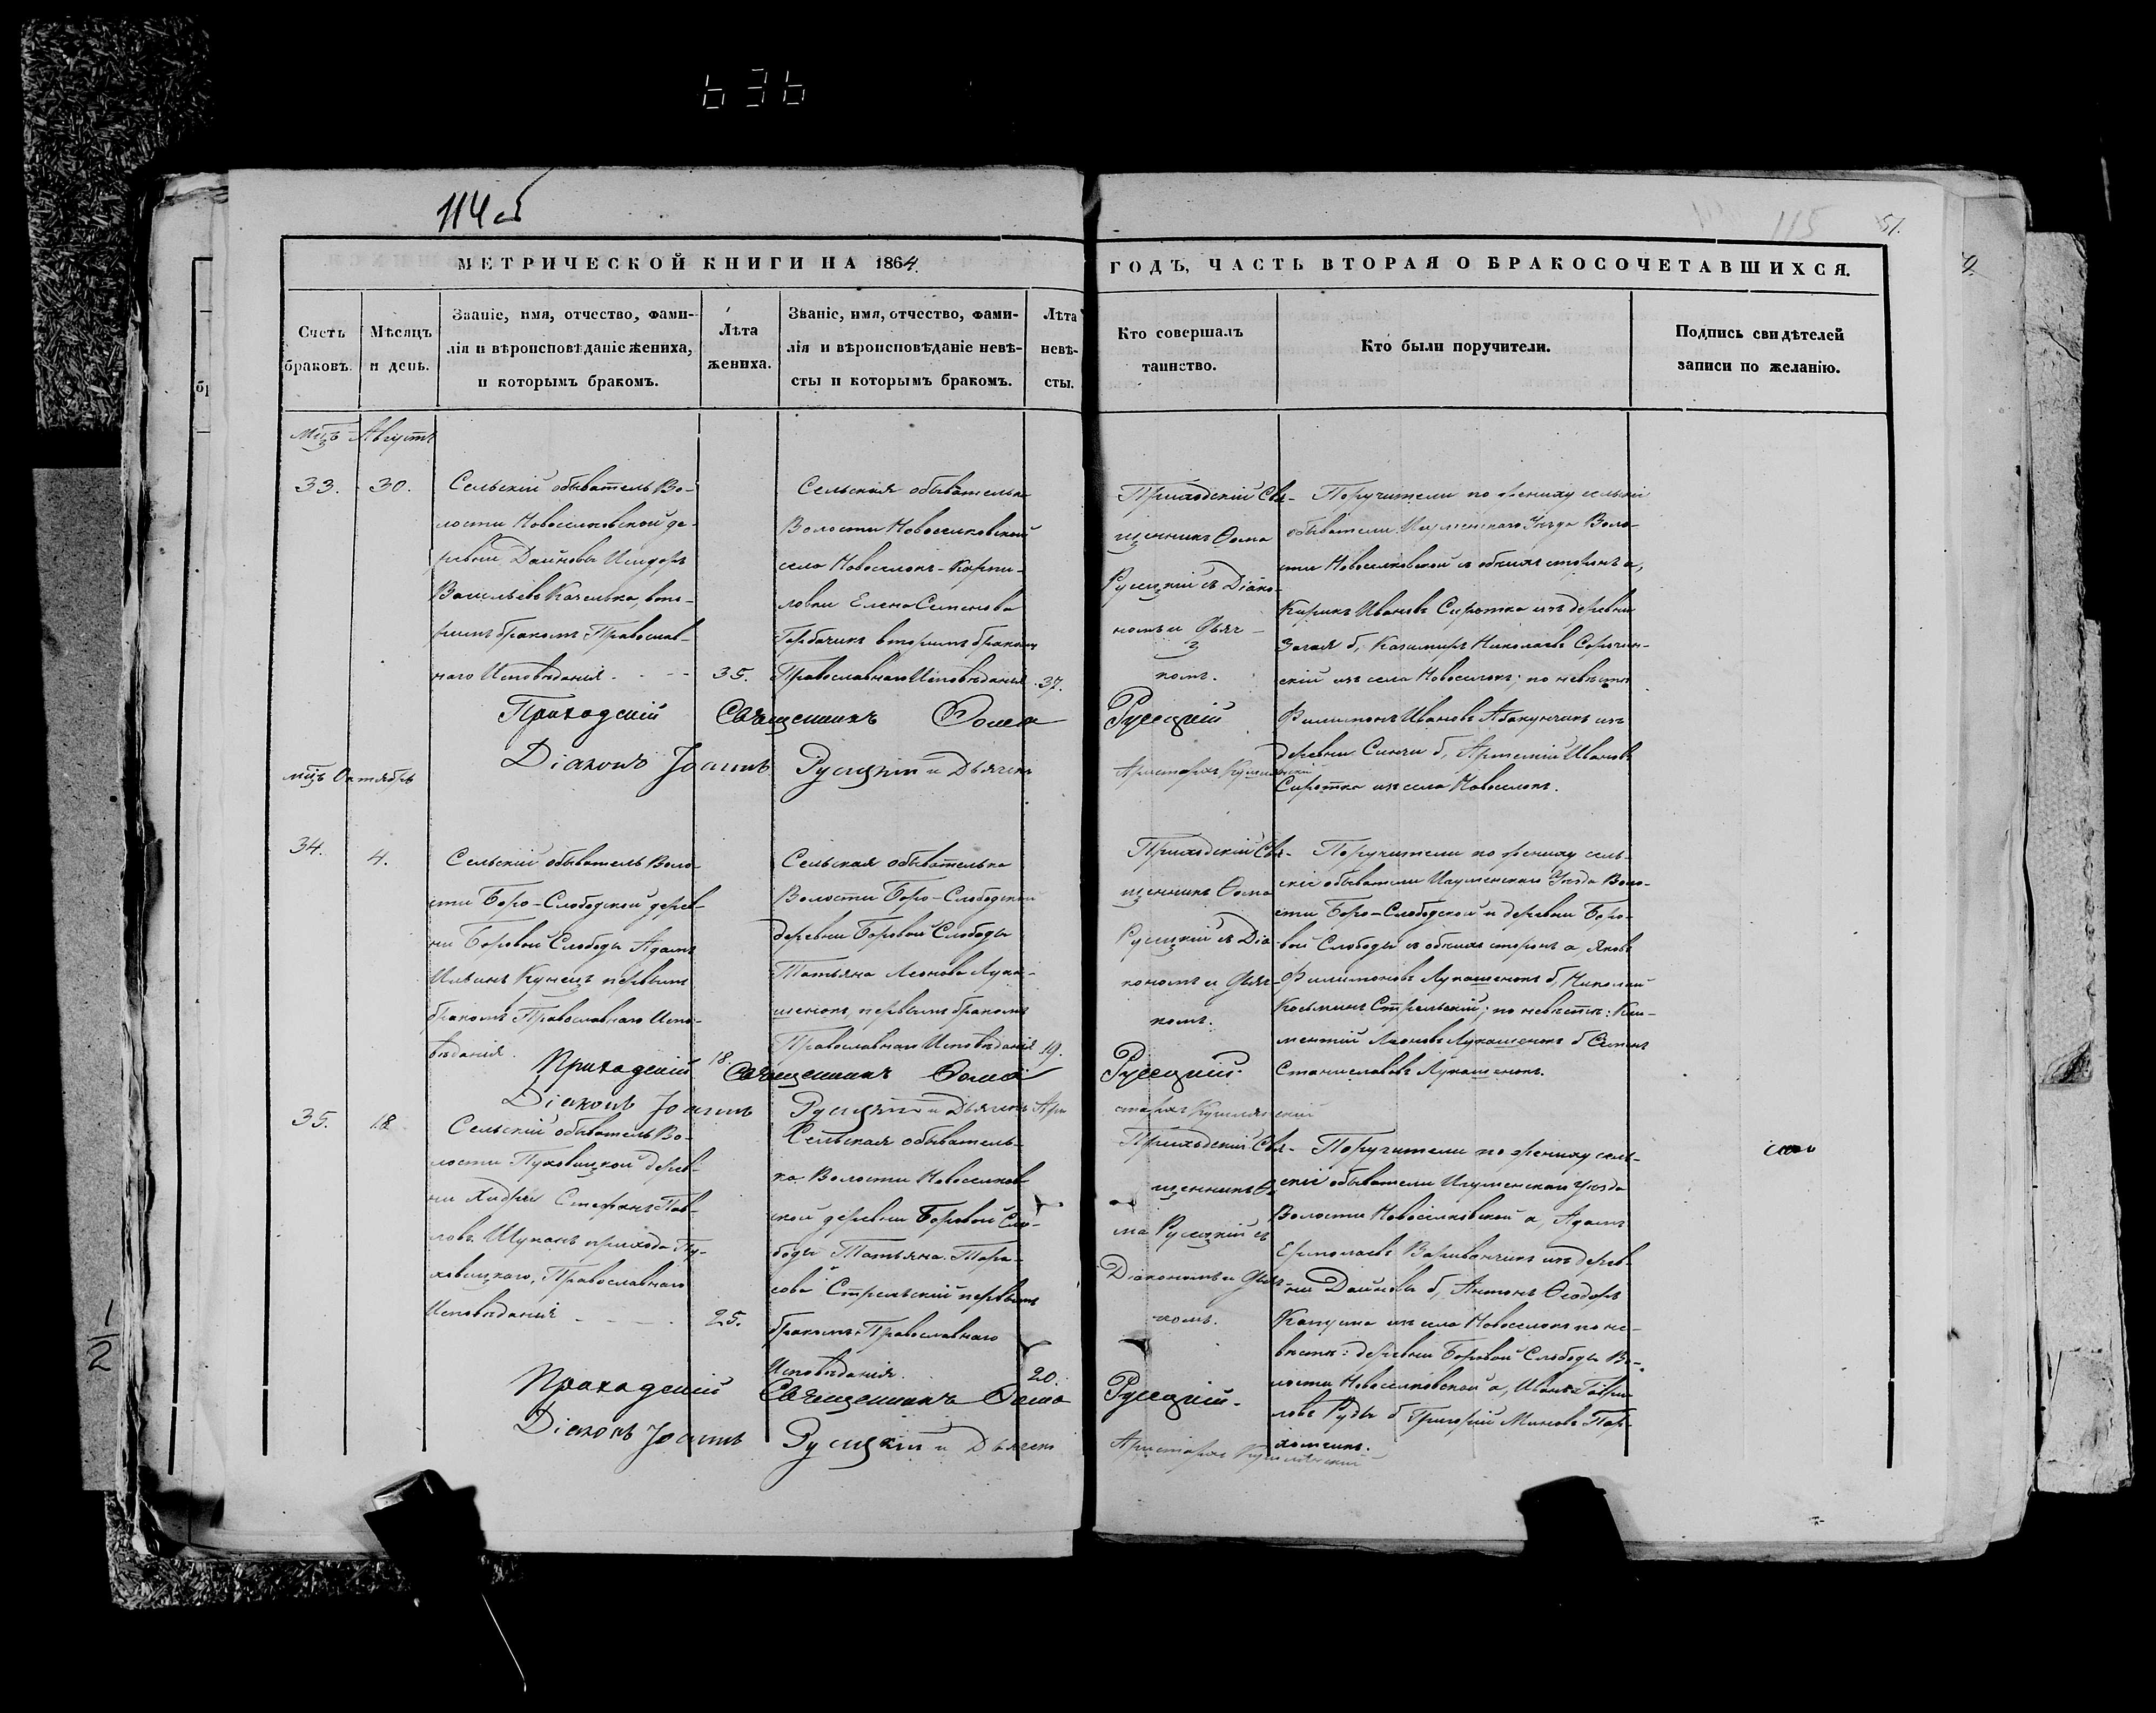 636
114 об
115
51.
МЕТРИЧЕСКОЙ КНИГИ НА 1864
ГОДЪ, ЧАСТЬ ВТОРАЯ О БРАКОСОЧЕТАВШИХСЯ.
Счетъ
браковъ.
Мѣсяцъ
и день.
Званіе, имя, отчество, фами-
лія и вѣроисповѣданіе жениха,
и которымъ бракомъ.
Лѣта
жениха.
Званіе, имя, отчество, фами-
лія и вѣроисповѣданіе невѣ-
сты и которымъ бракомъ.
Лѣта
невѣ-
сты.
Кто совершалъ
таинство.
Кто были поручители.
Подпись свидѣтелей
записи по желанію.
Мцъ Августъ
33.
30.
Сельскій обыватель Во-
лости Новоселковской де-
ревни Дайновы Исидоръ
Васильевъ Качелька, вто-
рымъ бракомъ Православ-
наго Исповѣданія
35.
Сельская обывателька
Волости Новоселковской
села Новоселокъ-Корпи-
ловки Елена Семенова
Горбачикъ вторымъ бракомъ
Православнаго Исповѣданія
37.
Приходскій Свя-
щенникъ Ѳома
Русецкій съ Діако-
номъ и Дьяч-
комъ.
Поручители по жениху сельскіе
обыватели Игуменскаго Уѣзда Воло-
сти Новоселковской съ обѣихъ сторонъ а,
Кирикъ Ивановъ Сиротка изъ деревни
б, Казимиръ Николаевъ Сорочин-
скій изъ села Новоселокъ; по невѣстѣ
Филимонъ Ивановъ Абакунчикъ изъ
деревни б, Артемій Ивановъ
Сиротка изъ села Новоселокъ.
Приходскій Священникъ Ѳома Русецкій
Діаконъ Іоаннъ Русецкій и Дьячекъ Аристархъ
мцъ Октябрь
34.
4.
Сельскій обыватель Воло-
сти Боро-Слободской дерев-
ни Боровой Слободы Адамъ
Ильинъ Кунецъ первымъ
бракомъ Православнаго Испо-
вѣданія.
18.
Сельская обывателька
Волости Боро-Слободской
деревни Боровой Слободы
Татьяна Леонова Лука-
шенокъ, первымъ бракомъ
Православнаго Исповѣданія
19.
Приходскій Свя-
щенникъ Ѳома
Русецкій съ Діа-
кономъ и Дьяч-
комъ.
Поручители по жениху сель-
скіе обыватели Игуменскаго Уѣзда Воло-
сти Боро-Слободской и деревни Боро-
вой Слободы съ обѣихъ сторонъ а Яковъ
Филимоновъ Лукашенокъ б, Николай
Косьминъ Стрельскій; по невѣстѣ: Кли-
ментій Леоновъ Лукашенокъ б Семенъ
Станиславовъ Лукашенокъ.
Приходскій Священникъ Ѳома Русецкій
Діаконъ Іоаннъ Русецкій и Дьячекъ Ари-
стархъ
35.
18
Сельскій обыватель Во-
лости Пуховицкой дерев-
ни Стефанъ Пав-
ловъ Шуканъ прихода Пу-
ховицкаго, Православнаго
Исповѣданія
25.
Сельская обыватель-
ка Волости Новоселков-
ской деревни Боровой Сло-
боды Татьяна Тара-
сова Стрельскій первымъ
бракомъ Православнаго
Исповѣданія.
20.
Приходскій Свя-
щенникъ Ѳо-
ма Русецкій съ
Діакономъ и Дьяч-
комъ.
Поручители по жениху сель-
скіе обыватели Игуменскаго Уѣзда
Волости Новоселковской а, Адамъ
Ермолаевъ изъ дерев-
ни Дайновы б, Антонъ Ѳеодоръ
Капуста изъ села Новоселокъ по не-
вѣстѣ: деревни Боровой Слободы Во-
лости Новоселковской а, Иванъ Гаври-
ловъ Рудь б Григорій Миновъ Пар-
хомчикъ.
Приходскій Священникъ Ѳома Русецкій.
Діаконъ Іоаннъ Русецкій и Дьячекъ
Аристархъ
1/2